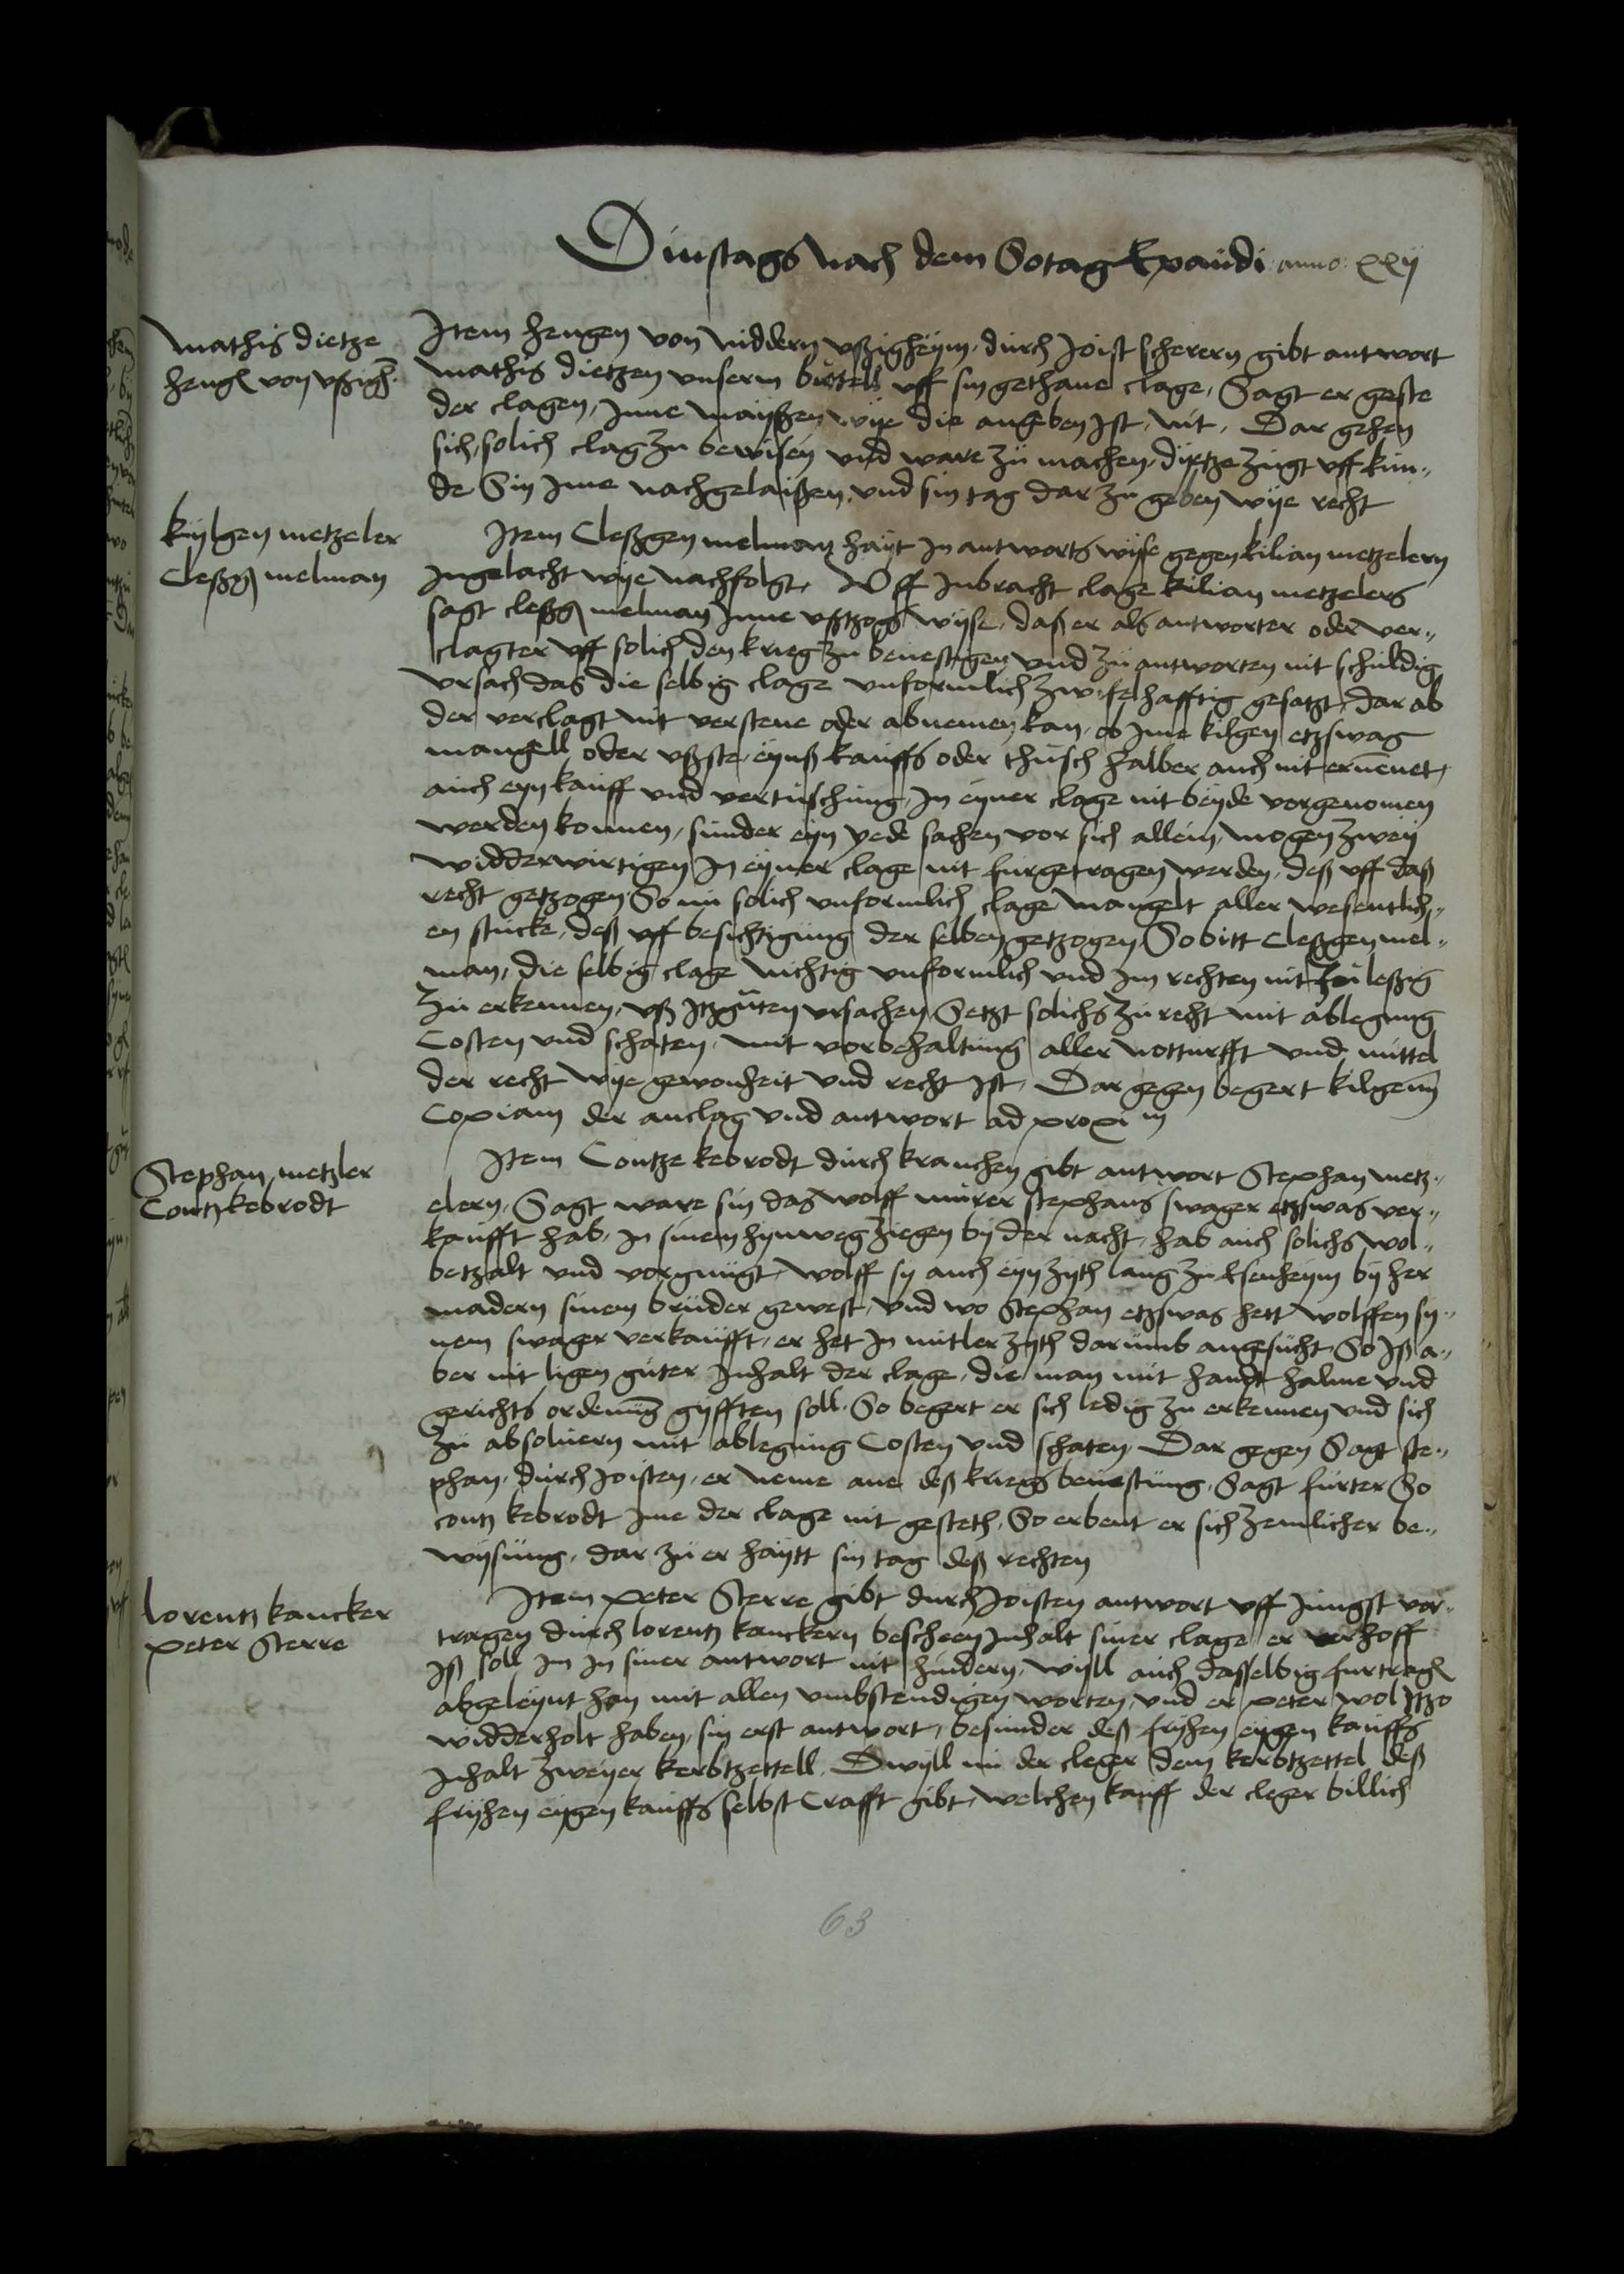 Dinstags nach dem Sotag Exaudi anno xxij
Mathis dietze
hengen von vßigh
Item hengen von niddern vßigheym durch Joist scherern gibt antwort
Mathis dietzen vnserm buttell vff sin gethane clage, Sagt er geste
der clagen Inne maißen wije die angeben Ist, nit, Dar gehen
sich solich clag zu bewisen vnd ware zu machen dietze zugt vff kun¬
de Sin Ime nachgelaißen vnd sin tag dar zu geben wije recht
kylgen metzeler
Cleßgen melman
Item Cleßgen melman hait In antworts wise gegen kilian metzelern
Ingelacht wije nachfolgt, Vff Inbracht clage kilian metzelers
sagt cleßgen melman Inne vßtzogs wijse, daß er als antworter oder ver¬
clagter vff solich den krieg zu beuestigen vnd zu antworten nit schuldig
vrsach das die selbig clage vnformlich zwifelhafftig gesatzt, dar ab
der verclagt nit verstene oder abnemen kan, ob Ime kilgen etzswag
mangell oder vßste, eynß kauffs oder thusch halber auch nit ernenet,
auch eyn kauff vnd vertuschung, In eyner clage nit beyde vorgenomen
werden konnen, sunder eyn yede sachen vor sich allein, mogen zweij
widderwirtigen In eyner clage nit furgetragen werden, deß vff daß
recht getzogen So nu solich vnformlich clage mangelt aller wesentlich¬
en stucke, deß vff besichtigung der selben getzogen So bitt Cleßgen mel¬
man, die selbig clage nichtig vnformlich vnd im rechten nit zuleßig
zu erkennen, vß Itzguten vrsachen Setzt solichs zu recht mit ablegung
Costen vnd schaten, mit vorbehaltung aller notturfft vnd mittel
der recht wije gewonheit vnd recht Ist, Dar gegen begert kilgenn
Copiam der anclag vnd antwort ad proxim
Stephan metzler
Contz kebrodt
Item Contze kebrodt durch kranchen gibt antwort Stephan metz¬
elern, Sagt ware sin das wolff murer stephans swager etzswas ver¬
kaufft hab, In sinem hynweg ziegen bij der nacht, hab auch solichs wol¬
betzalt vnd vorgnugt, wolff sij auch eyn zyth lang zu Esenheym bij her
madern sinem bruder gewest, vnd wo Stephan etzswas hett wolffen sy¬
nem swager verkaufft, er het In mitler zyth darumb angesucht, So Iß a¬
ber nit ligen guter Inhalt der clage, die man mit handt halme vnd
gerichts ordenung gyfften soll, So begert er sich ledig zu erkennen vnd sich
zu absoluern mit ablegung Costen vnd schaten, Dar gegen Sagt ste¬
phan, durch Joisten, er neme ane deß kriegs beuestung, Sagt furter So
contz kebrodt Ime der clage nit gesteth, So erbeut er sich zemlicher be¬
wysung, dar zu er haytt sin tag deß rechten
lorentz kancker
peter Sterre
Item peter Sterre gibt durch Joisten antwort vff Jungst vor¬
tragen durch lorentz kanckern bescheen Inhalt siner clage er verhoff
Iß soll im In siner antwort nit hindern, wijll auch dasselbig furtragen
abgeleynt han mit allen vmbstendigen worten, vnd er peter wol Itzo
widderholt haben, sin erst antwort, besunder deß frihen eigen kauffs
Inhalt zweyer kerbtzettell, Dwijll nu der cleger dem kerbtzettel deß
frijhen eygen kauffs selbst Crafft gibt, welchen kauff der cleger billich
63